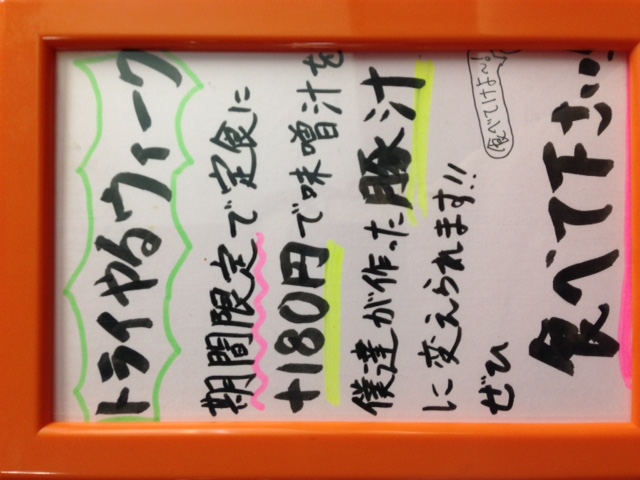 トライやるウィーク
期間限定で定食に
+180円で味噌汁を
僕達が作った豚汁
に変えられます!!
ぜひ
食べてけよ〜!
食べて下さい!